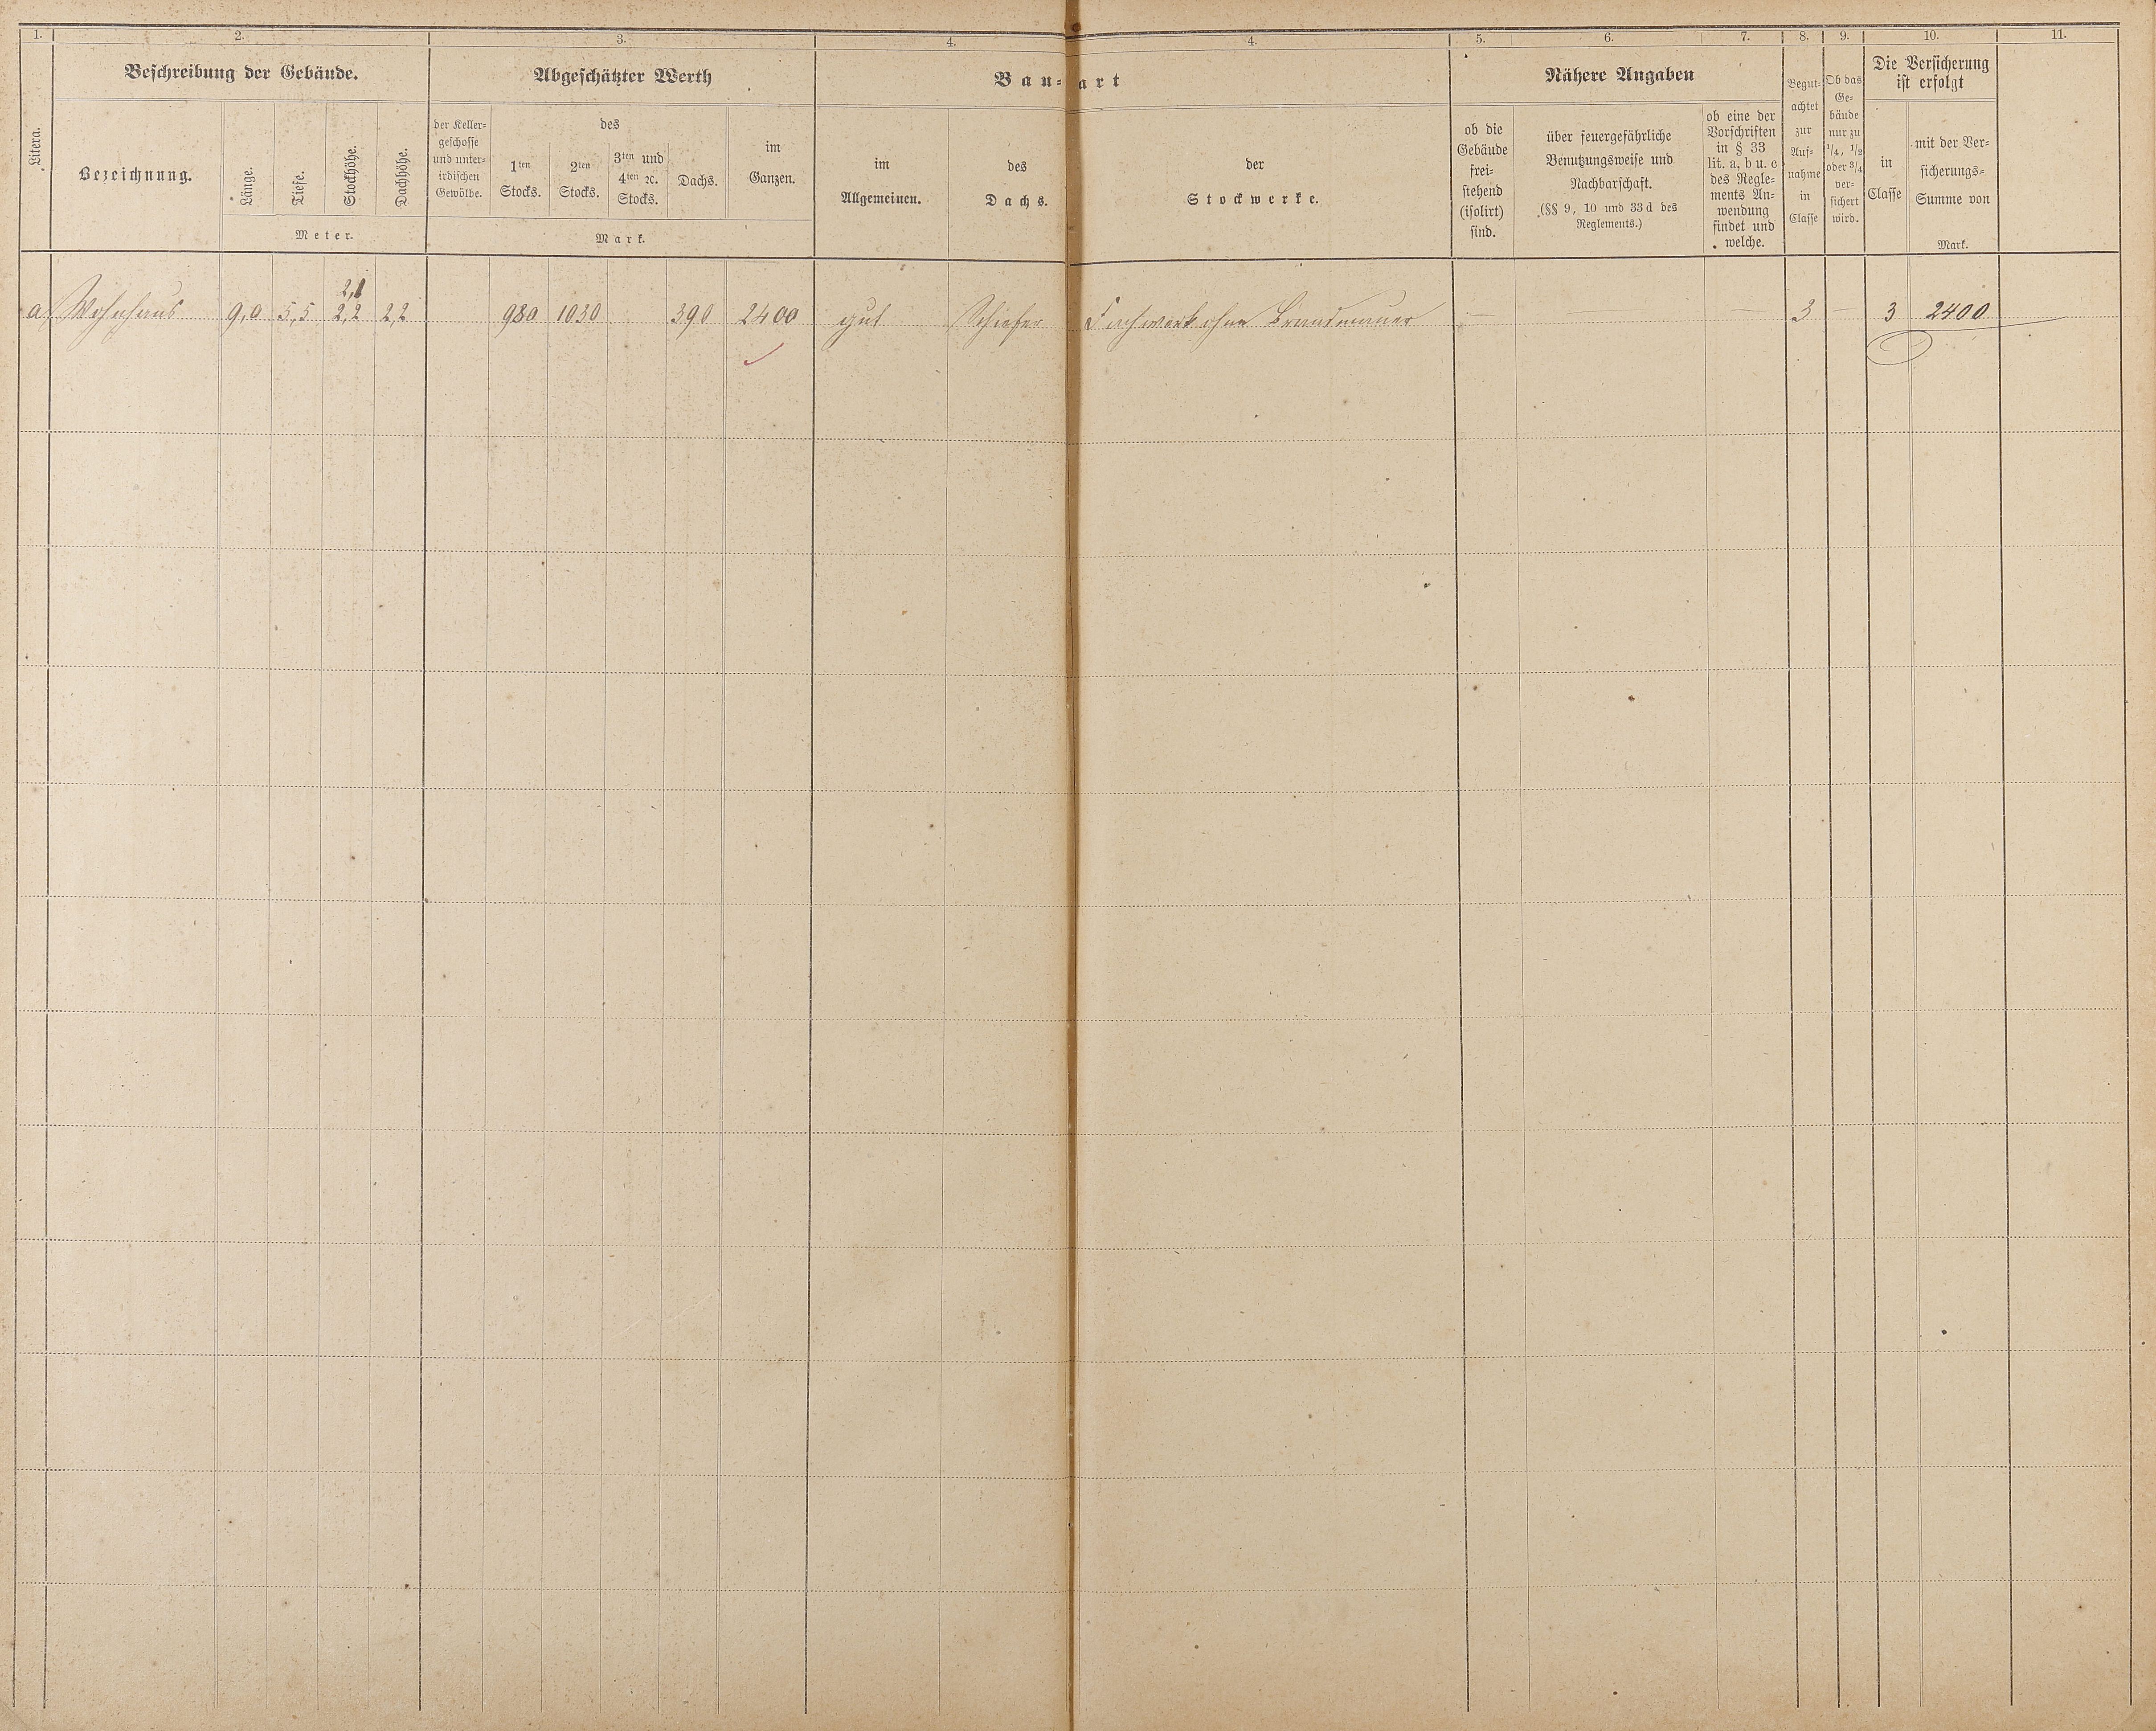 1. 2. 3. 4. 4. 5. 6. 7. 8. 9. 10. 11.
Litera.
Beschreibung der Gebäude.
Bezeichnung.
Länge.
Tiefe.
Stockhöhe.
Dachhöhe.
Meter.
Abgeschätzter Werth
der Keller-
geschosse
und unter-
irdischen
Gewölbe.
des
1ten
Stocks.
2ten
Stocks.
3ten und
4ten ꝛc.
Stocks.
Dachs.
im
Ganzen.
Mark.
Bau-art
im
Allgemeinen.
des
Dachs.
der
Stockwerke.
Nähere Angaben
ob die
Gebäude
frei-
stehend
(isolirt)
sind.
über feuergefährliche
Benutzungsweise und
Nachbarschaft.
(§§ 9, 10 und 33d des
Reglements.)
ob eine der
Vorschriften
in § 33
lit. a, b u. c
des Regle-
ments An-
wendung
findet und
welche.
Begut-
achtet
zur
Auf-
nahme
in
Classe
Ob das
Ge-
bäude
nur zu
1/4, 1/2
oder 3/4
ver-
sichert
wird.
Die Versicherung
ist erfolgt
in
Classe
mit der Ver-
sicherungs-
Summe von
Mark.
2,1
a/ Wohnhaus 9,0 5,5 2,2 2,2 980 1030 390 2400 gut Schiefer Fachwerk ohne Brandmauer — — — 3 — 3 2400